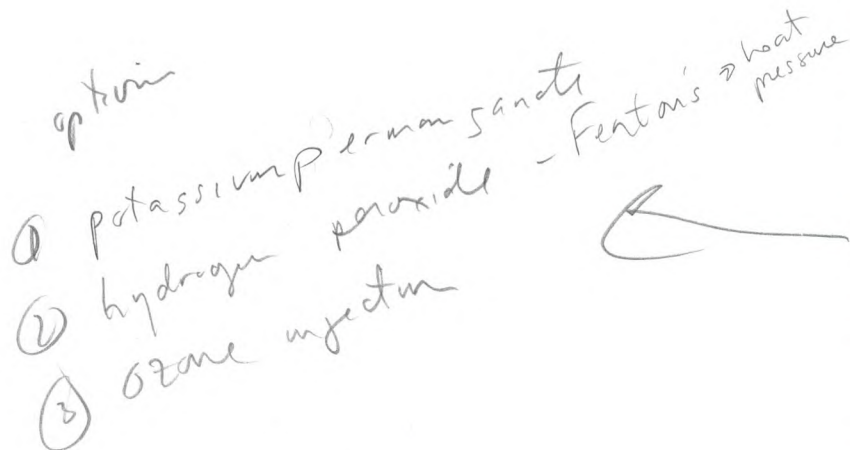 options
① potassium permanganate
② hydrogen peroxide - Fenton's → heat
pressure
③ ozone injection